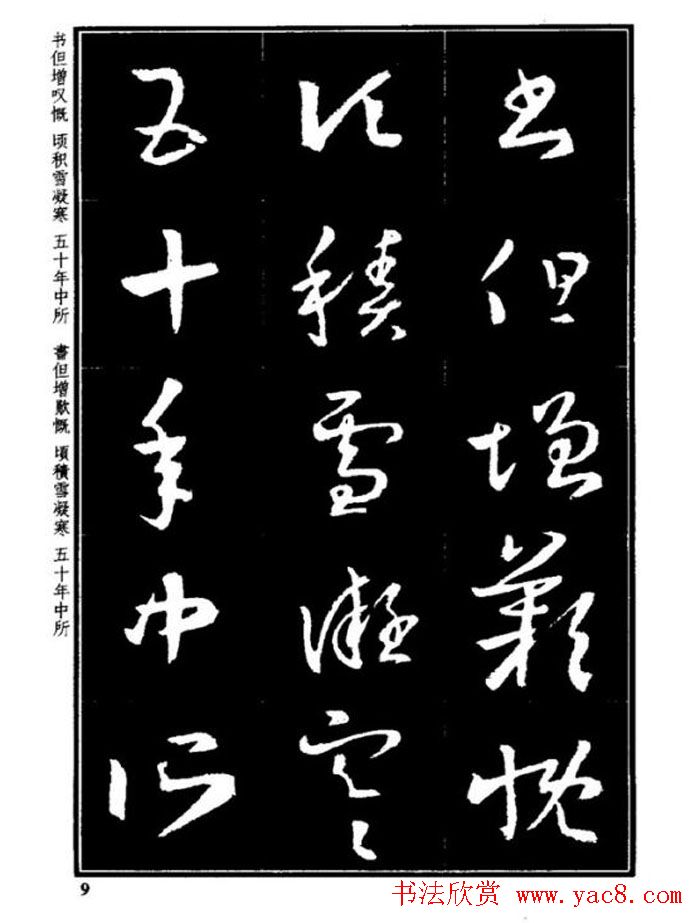 書但增歎慨
頃積雪凝寒
五十年中所
书但增叹慨 顷积雪凝寒 五十年中所 書但增歎慨 頃積雪凝寒 五十年中所
9
书法欣赏 www.yac8.com